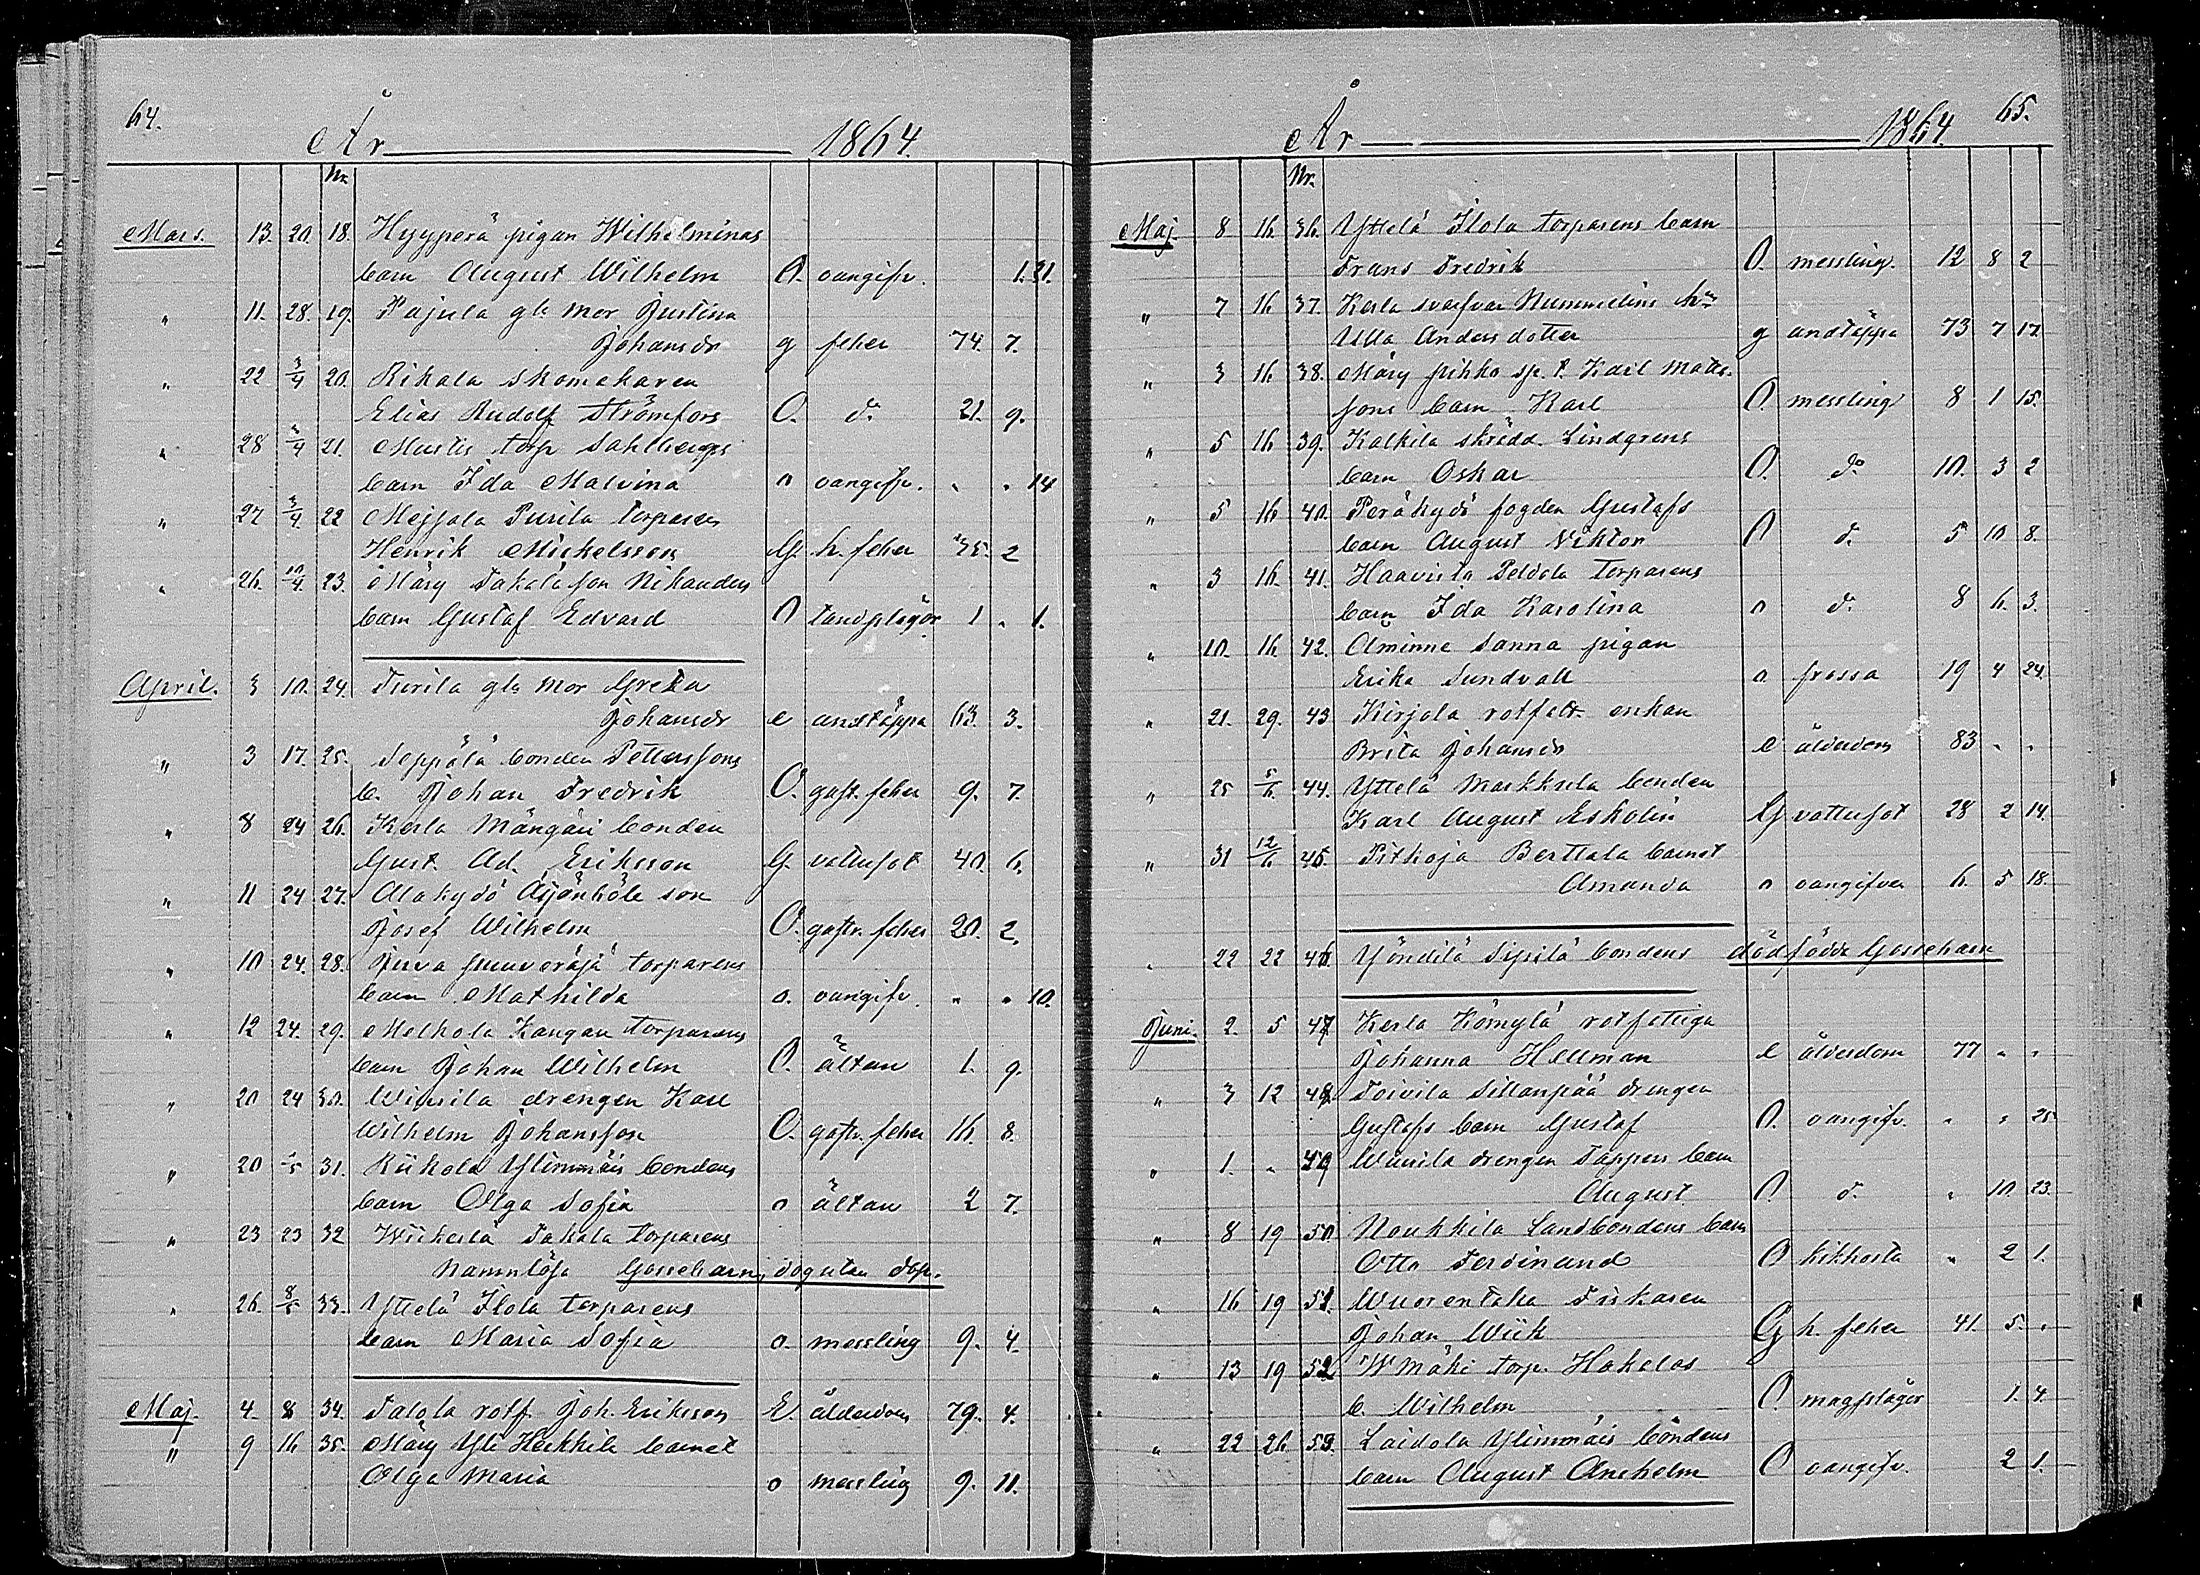 64.
År 1864.
Nr.
Mars. 13. 20. 18. Hyyperä pigan Wilhelminas
barn August Wilhelm O. oangifv. 1. 21.
" 11. 28. 19. Pajula gla mor Justina
Johansdr g feber 74. 7.
" 22 3/4 20. Rikala skomakaren
Elias Rudolf Strömfors O. do 21. 9.
" 28 3/4 21. Mustis torp Sahlbergs
barn Ida Malvina o oangifv. " " 14
" 27 3/4 22 Mejjala Purila torparen
Henrik Mickelsson G. h. feber 35. 2
" 26. 10/4. 23. Märy Takala son Nikanders
barn Gustaf Edvard O tandplågor 1 " 1.
April. 3 10. 24. Turila gla mor Greta
Johansdr e andtäppa 63. 3.
" 3 17. 25. Seppälä bonden Pettersons
b. Johan Fredrik O. gastr. feber 9. 7.
" 8 24 26. Kerla Mängäri bonden
Gust. Ad. Eriksson G. vattusot 40. 6.
" 11 24 27. Alakydö Äijänhöle son
Josef Wilhelm O. gastr. feber 20. 2.
" 10 24. 28. Juva torparens
barn Mathilda o. oangifv. " " 10.
" 12 24. 29. Melhola Kangan torparens
barn Johan Wilhelm O. ältan 1. 9.
" 20 24 30. Wiurila drengen Karl
Wilhelm Johansson O. gastr. feber 16. 8.
" 20 1/5 31. Kiikola Ylimmäis bondens
barn Olga Sofia o ältan 2 7.
" 23 23 32 Wiikerlä Takala torparens
Namnlösa Gossebarn, dog utan dop.
" 26. 8/5 33. Yttelä Ilola torparens
barn Maria Sofia o. messling 9. 4.
Maj. 4. 8 34. Tatola rotf Joh. Eriksson E. ålderdom 79. 4.
" 9 16 35. Märy Yli Heikkilä barnet
Olga Maria o messling 9. 11.
År 1864. 65.
Nr.
Maj. 8 16 36. Yttelä Ilola torparens barn
Frans Fredrik O. messling. 12 8 2
" 7 16 37. Kerla svarfvar Nummelins
Ulla Andersdotter g andtäppa 73 7 17.
" 3 16 38. Märy pihko sp. t. Karl Matts-
sons barn Karl O. messling 8 1 15.
" 5 16 39. Kalkila skrädd. Lindgrens
barn Oskar O. do 10. 3 2
" 5 16 40. Peräkydö fogden Gustafs
barn August Viktor O d. 5 10 8.
" 3 16. 41. Haavisto Peldola torparens
barn Ida Karolina o d. 8 6. 3.
" 10. 16. 42. Åminne Sanna pigan
Erika Sundvall o frossa 19 4 24.
" 21. 29. 43 Kirjola rotfatt. enkan
Brita Johansdr e ålderdom 83 " "
" 25 5/6. 44. Yttelä Markkula bonden
Karl August Eskolin G vattusot 28 2 14.
" 31 12/6 45 Pitkoja Berttala barnet
Amanda o oangifven 6. 5 18.
" 22 22 46 Yöndilä Sipilä bondens dödfödde Gossebarn
Juni. 2. 5 47 Kerla Környlä rotfattiga
Johanna Hellman e ålderdom 77 " "
" 3 12 48 Toivila Sillanpää drengen
Gustafs barn Gustaf O. oangifv. " " 25
" 1. " 49 Wiurila drengen Tappers barn
August O. d. " 10. 23.
" 8 19 50. Noukkila Landbondens barn
Otto Ferdinand O kikhosta " 2 1.
" 16 19 51. Wuorentaka Fiskaren
Johan Wiik G h. feber 41. 5. "
" 13 19 52 W mäki torp. Hakalas
b. Wilhelm O. magplågor 1. 4.
" 22 26. 53. Laidola Ylimmäis bondens
barn August Anshelm O oangifv. 2 1.